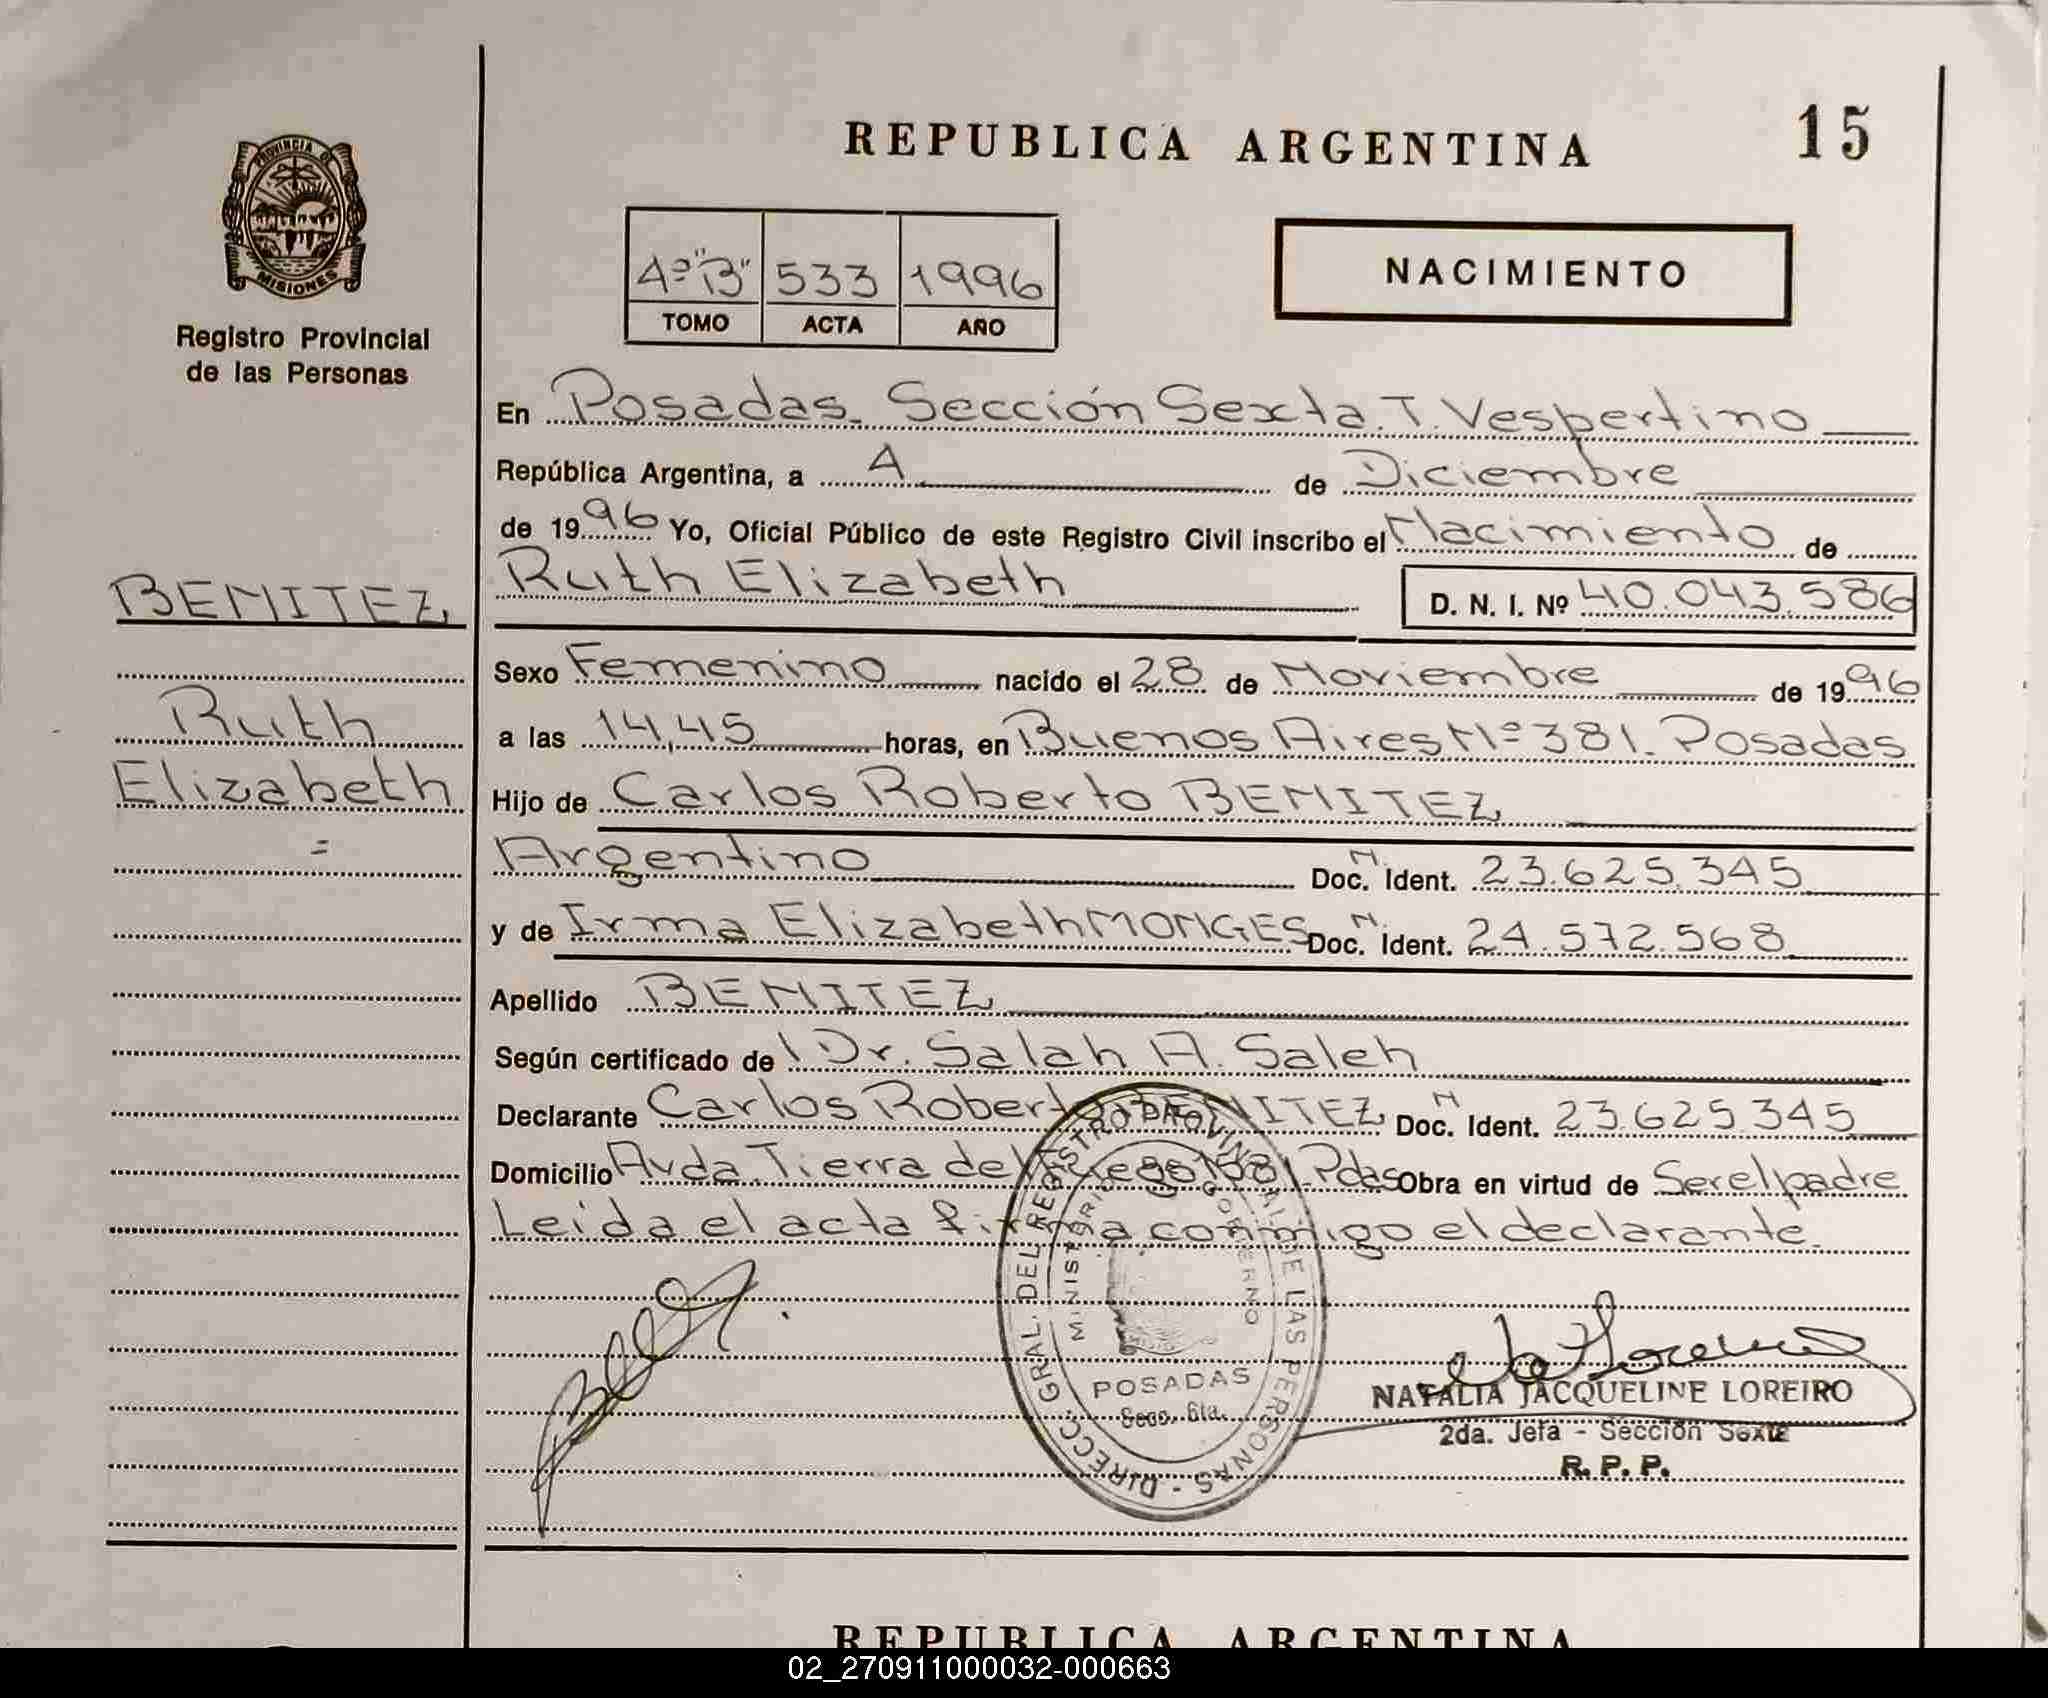 REPUBLICA ARGENTINA
15
PROVINCIA DE
MISIONES
Registro Provincial
de las Personas
4º "B" 533 1996
TOMO ACTA AÑO
NACIMIENTO
En Posadas. Sección Sexta. T. Vespertino
República Argentina, a 4 de Diciembre
de 1996 Yo, Oficial Público de este Registro Civil inscribo el Nacimiento de
Ruth Elizabeth D. N. I. Nº 40.043.586
BENITEZ
Ruth
Elizabeth
=
Sexo Femenino nacido el 28 de Noviembre de 1996
a las 14,45 horas, en Buenos Aires Nº 381. Posadas
Hijo de Carlos Roberto BENITEZ
Argentino Doc. N. Ident. 23.625.345
y de Irma Elizabeth MONGES Doc. N. Ident. 24.572.568
Apellido BENITEZ
Según certificado de Dr. Salah A. Saleh
Declarante Carlos Roberto BENITEZ Doc. N Ident. 23.625.345
Domicilio Avda. Tierra del Pdas Obra en virtud de Ser el padre
Leida el acta firma conmigo el declarante.
DIRECC. GRAL. DEL REGISTRO PROVINCIAL DE LAS PERSONAS -
MINISTERIO GOBIERNO
POSADAS
Secc. 6ta.
NATALIA JACQUELINE LOREIRO
2da. Jefa - Sección Sexta
R. P. P.
REPUBLICA ARGENTINA
02_270911000032-000663